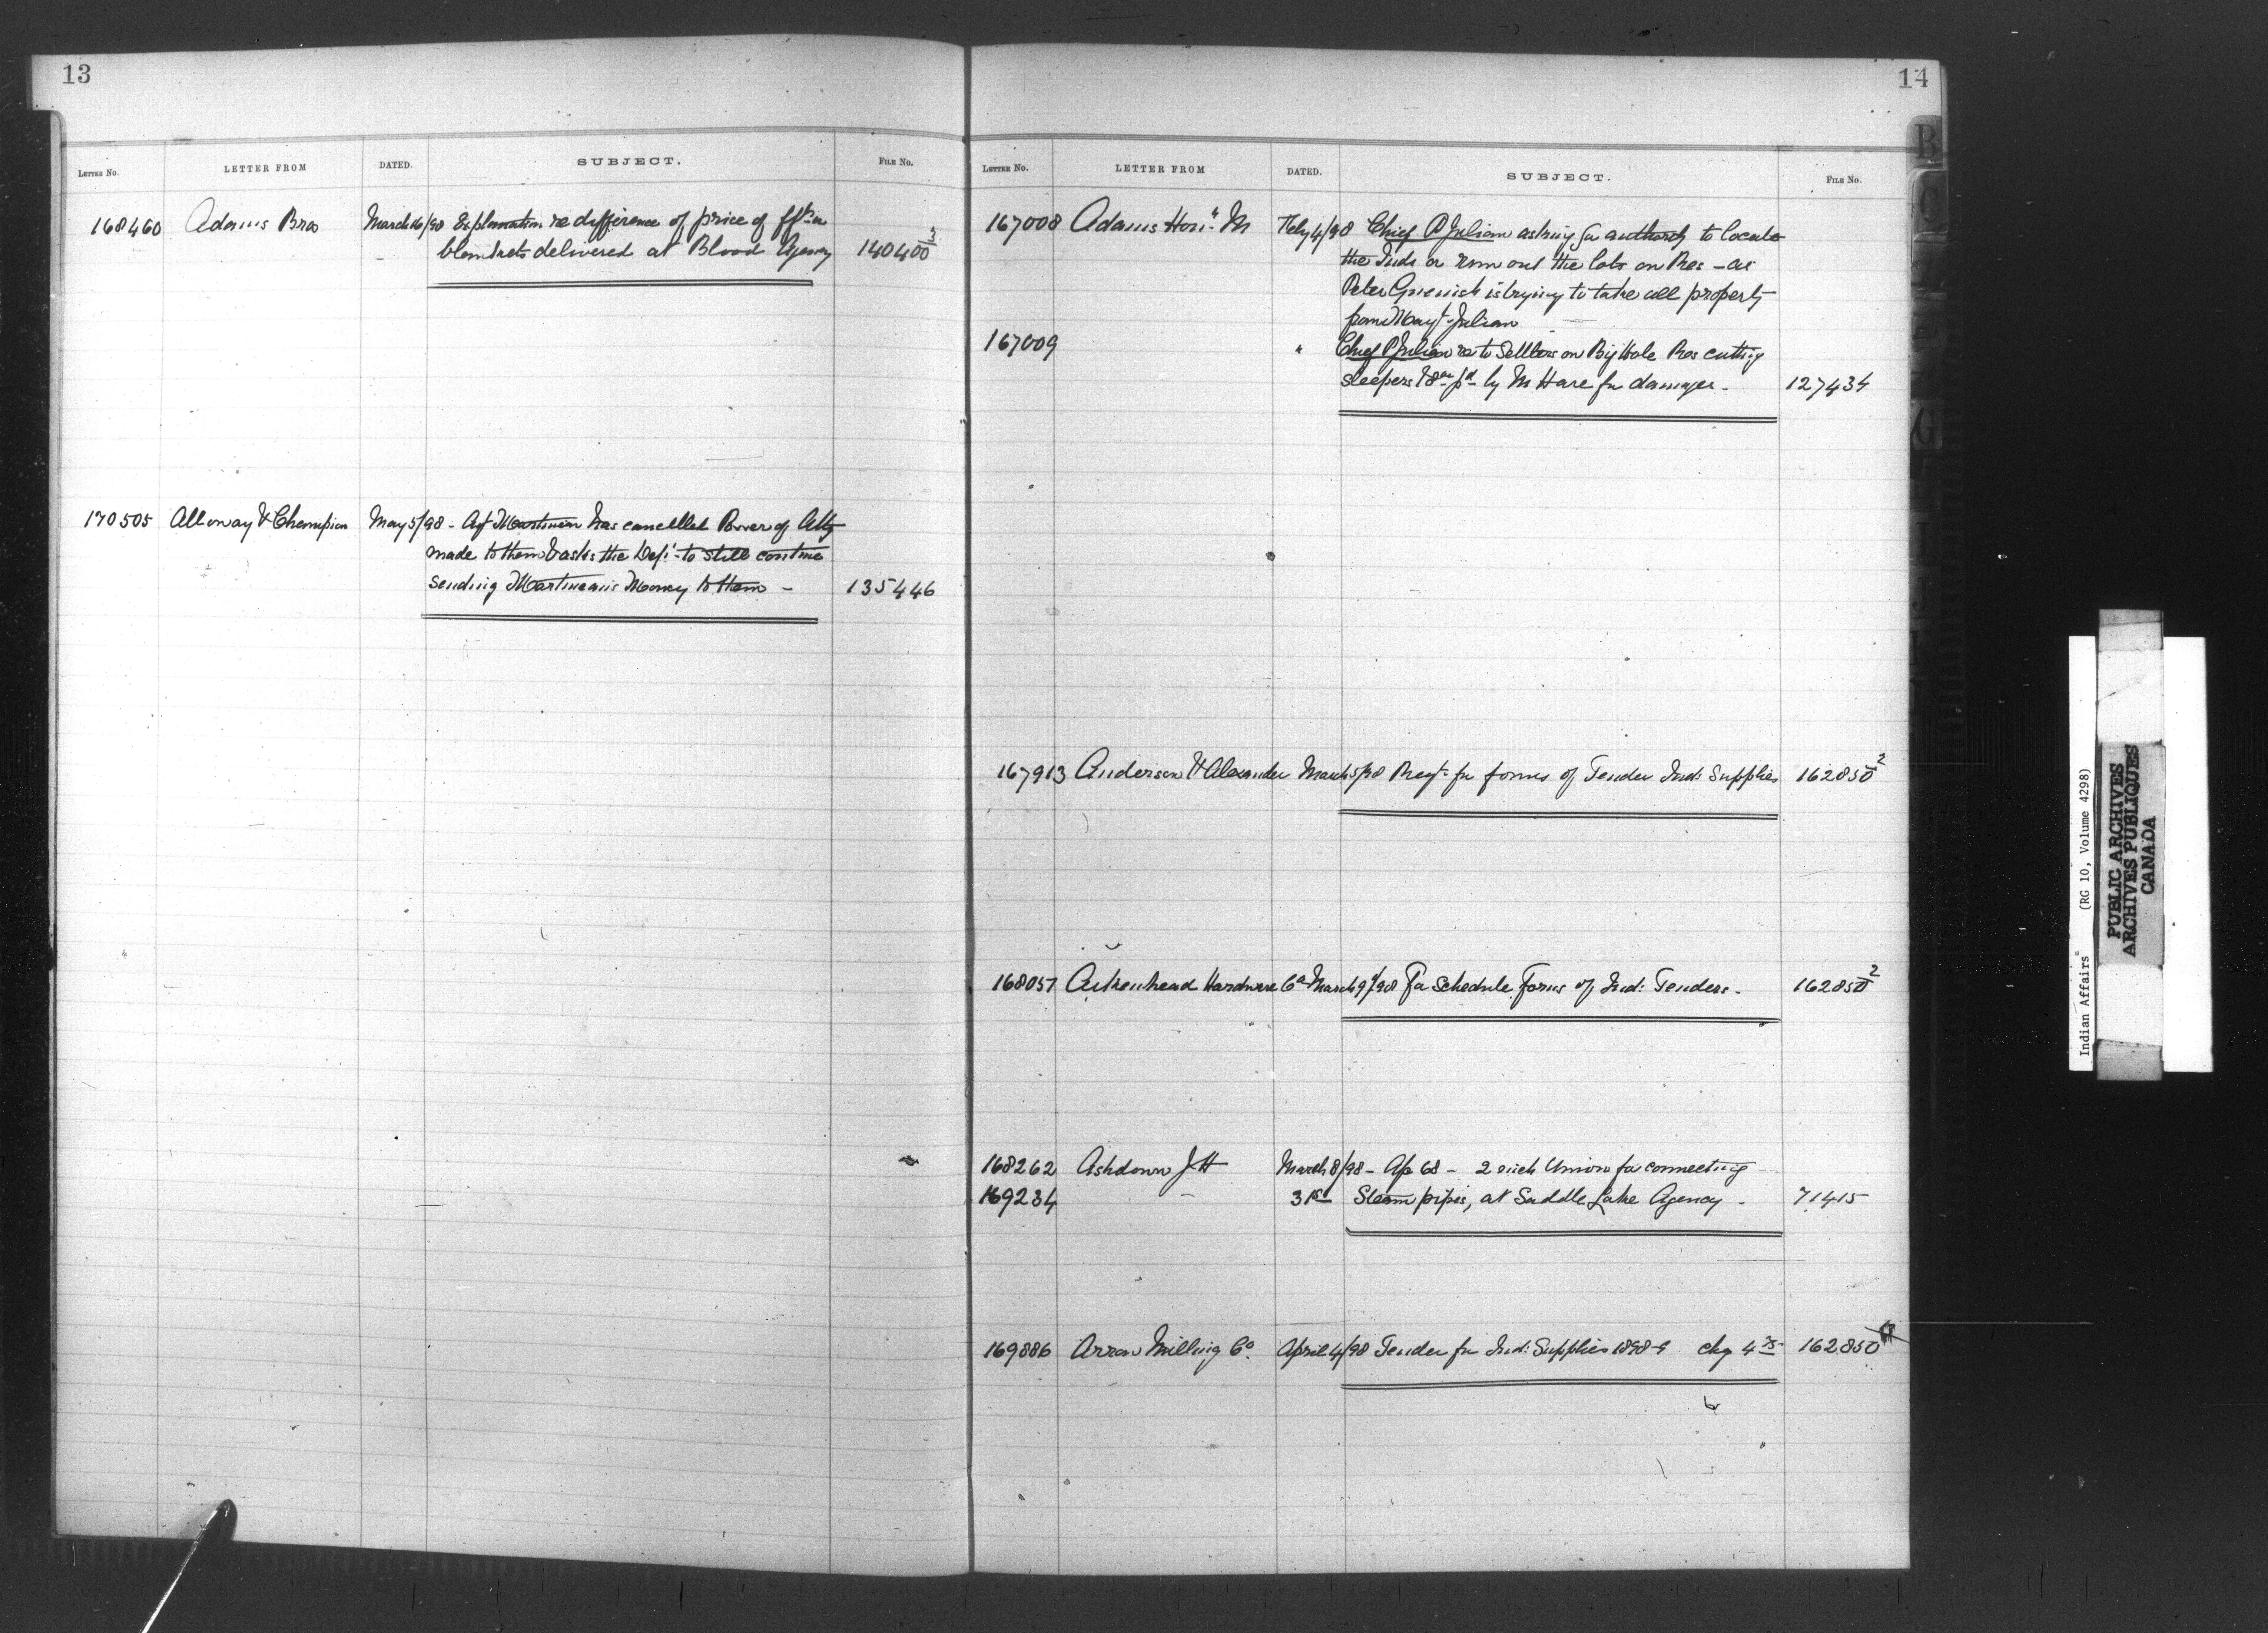 13
LETTER No. LETTER FROM DATED. SUBJECT. FILE No.
168460 Adams Bros March 16/98 Explanation re difference of price of
blankets delivered at Blood Agency 140400 3
170505 Alloway & Champion May 5/98 - Agt Martineau has cancelled Power of Atty
made to them & asks the Dept to still continue
sending Martineau's Money to them - 135446
14
LETTER No. LETTER FROM DATED. SUBJECT. FILE No.
167008 Adams Hon. M Feby 4/98 Chief P Julian asking for authority to locate
the Inds or run out the lots on Res - as
Peter is trying to take all property
from Julian
167009 " Chief P Julian re to Settlers on Big Hole Res cutting
sleepers & pd by Mr Hare for damages - 127434
167913 Anderson & Alexander March 5/98 Reqt for forms of Tender Ind: Supplies 162850 2
168057 Aikenhead Hardware Co March 9/98 For Schedule Forms of Ind: Tenders - 162850 2
168262 Ashdown J H March 8/98 - Ap 68 - 2 inch Union for connecting
169234 31st Steam pipes, at Saddle Lake Agency - 71415
169886 Arrow Milling Co. April 4/98 Tender for Ind: Supplies 1898-9 chq 162850
Indian Affairs (RG 10, Volume 4298)
PUBLIC ARCHIVES
ARCHIVES PUBLIQUES
CANADA